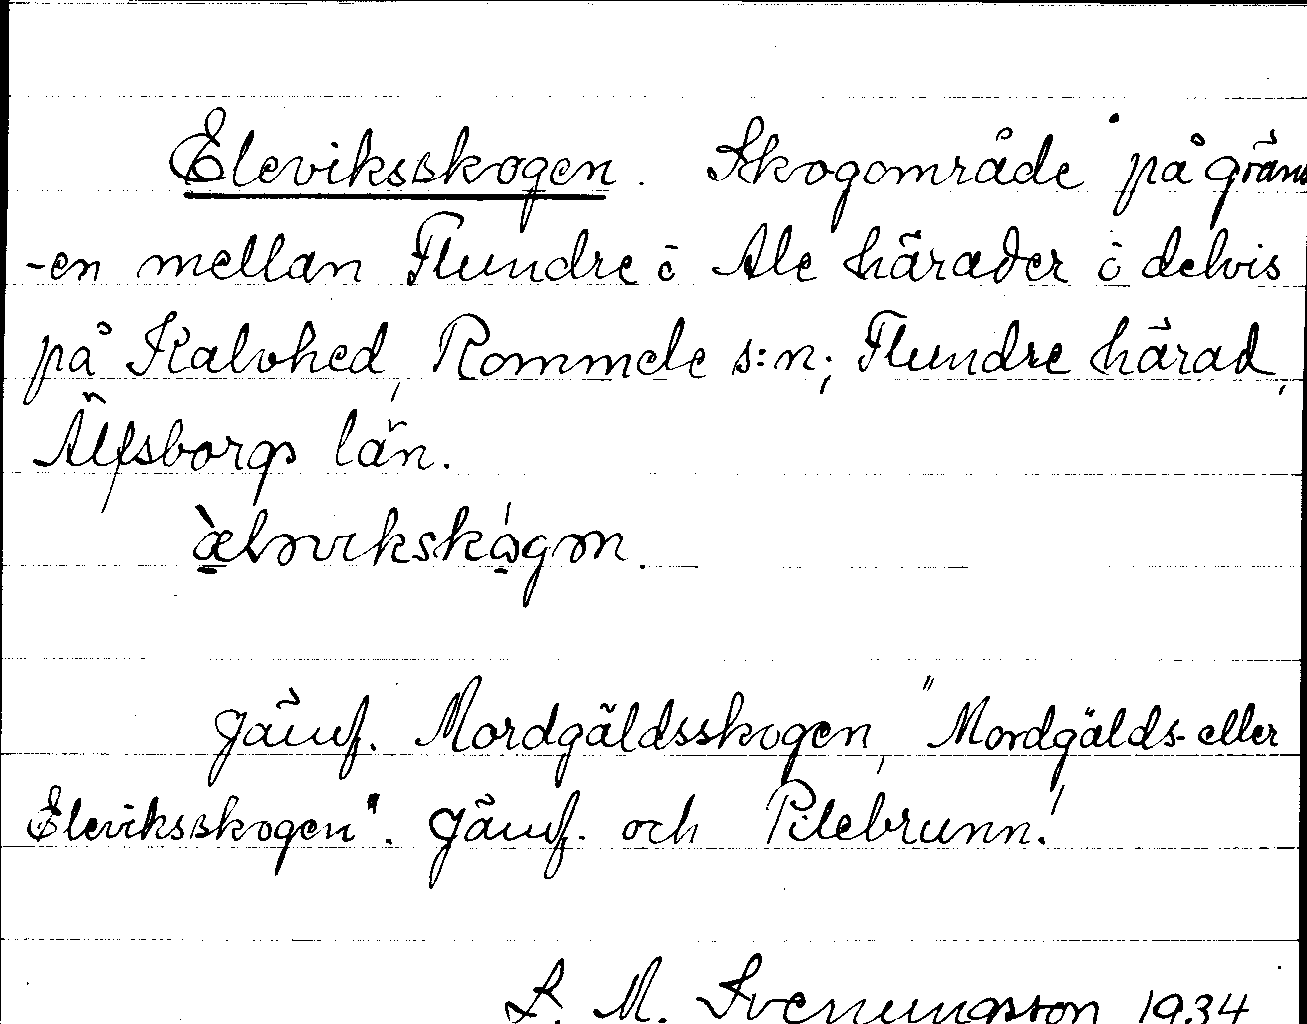 Eleviksskogen. Skogområde på gräns
-en mellan Flundre ō Ale härader ō delvis
på Kalvhed, Rommele s:n; Flundre härad,
Älfsborgs län.
æ̀ləvikskógən.
Jämf. Mordgäldsskogen, "Mordgälds- eller
Eleviksskogen". Jämf. och Pilebrunn!
S. M. Svenungsson 1934